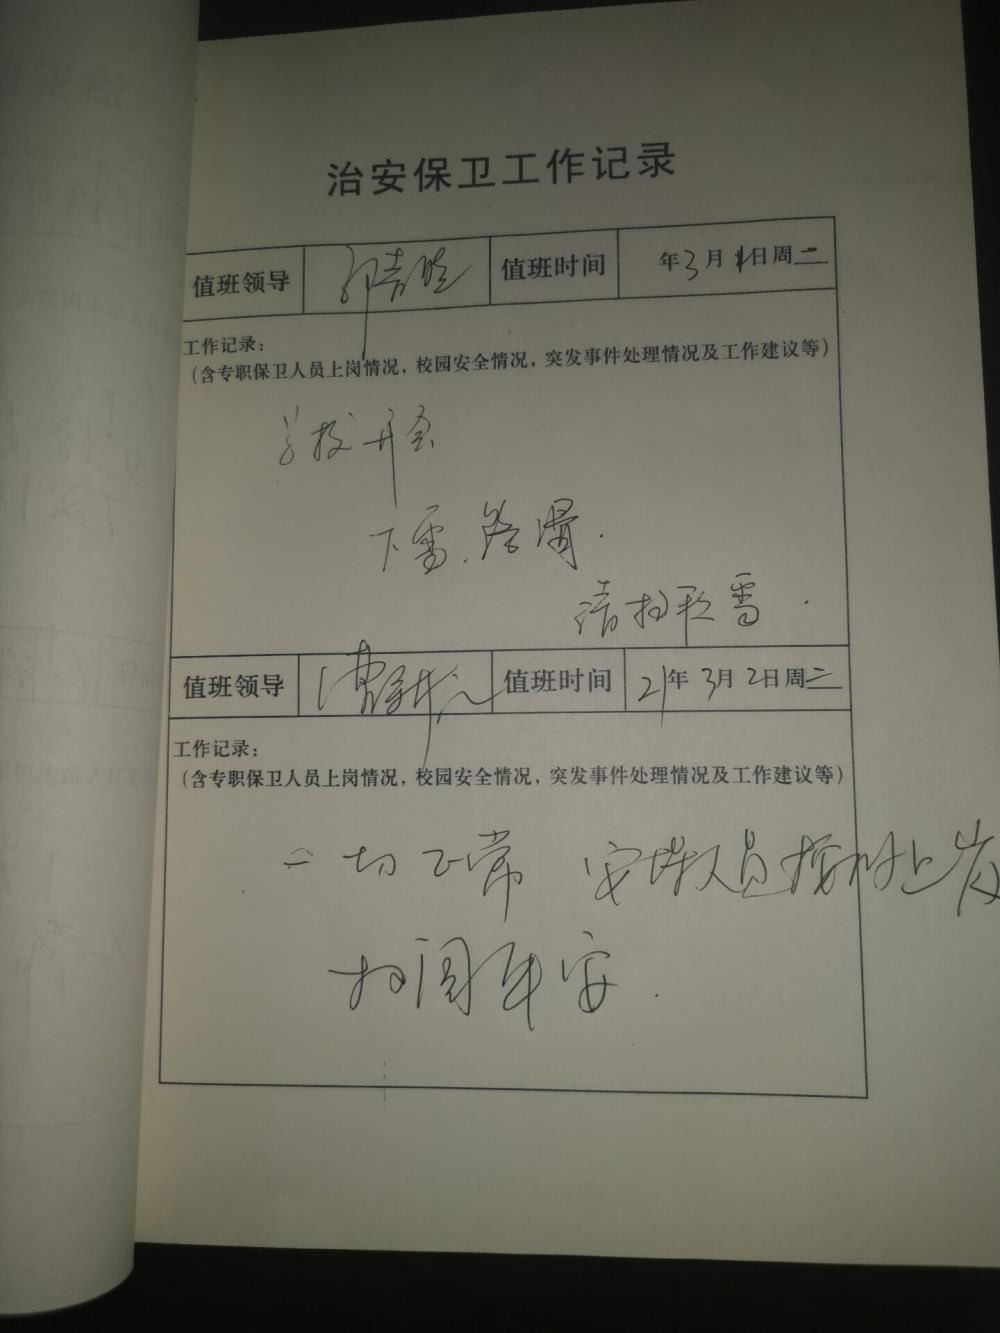 治安保卫工作记录
值班领导 值班时间 年3月1日周二
工作记录：
（含专职保卫人员上岗情况，校园安全情况，突发事件处理情况及工作建议等）
学校开会
下雪.路滑.
请扫积雪.
值班领导 值班时间 21年3月2日周二
工作记录：
（含专职保卫人员上岗情况，校园安全情况，突发事件处理情况及工作建议等）
一切正常 安保人员按时上岗
校园平安.